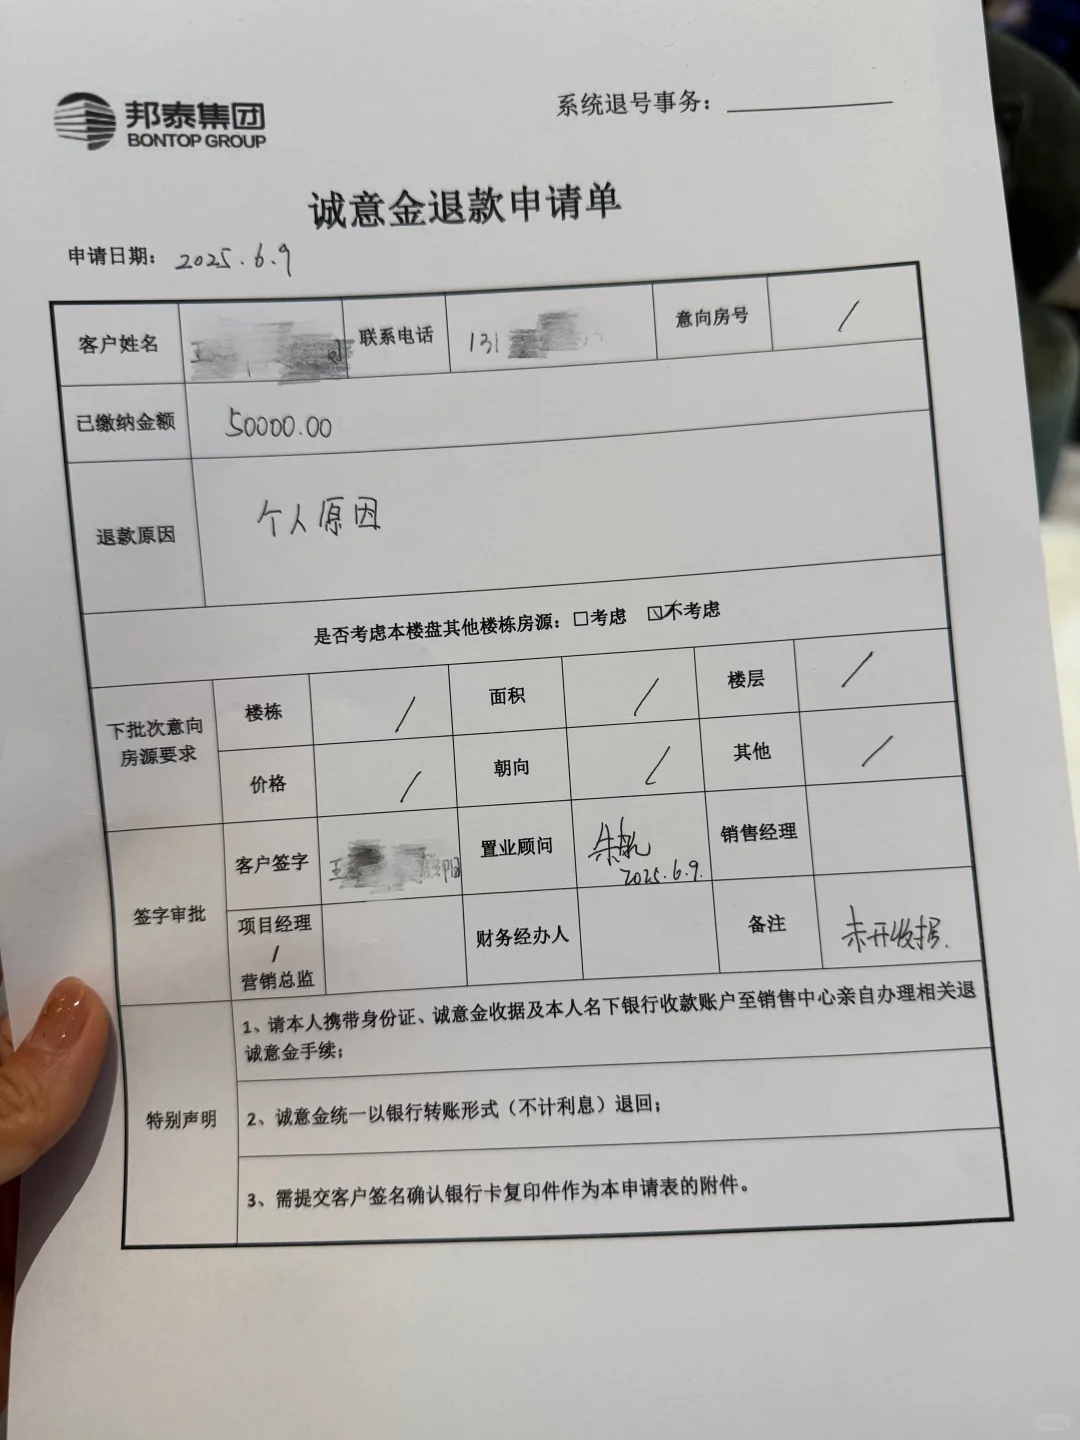 邦泰集团
BONTOP GROUP
系统退号事务：
诚意金退款申请单
申请日期： 2025.6.9
客户姓名 王 联系电话 131 意向房号 /
已缴纳金额 50000.00
退款原因 个人原因
是否考虑本楼盘其他楼栋房源：□考虑 ☑不考虑
下批次意向
房源要求
楼栋 / 面积 / 楼层 /
价格 / 朝向 / 其他 /
签字审批
客户签字 王 置业顾问 2025.6.9. 销售经理
项目经理
/
营销总监
财务经办人 备注 未开收据.
特别声明
1、请本人携带身份证、诚意金收据及本人名下银行收款账户至销售中心亲自办理相关退
诚意金手续；
2、诚意金统一以银行转账形式（不计利息）退回；
3、需提交客户签名确认银行卡复印件作为本申请表的附件。